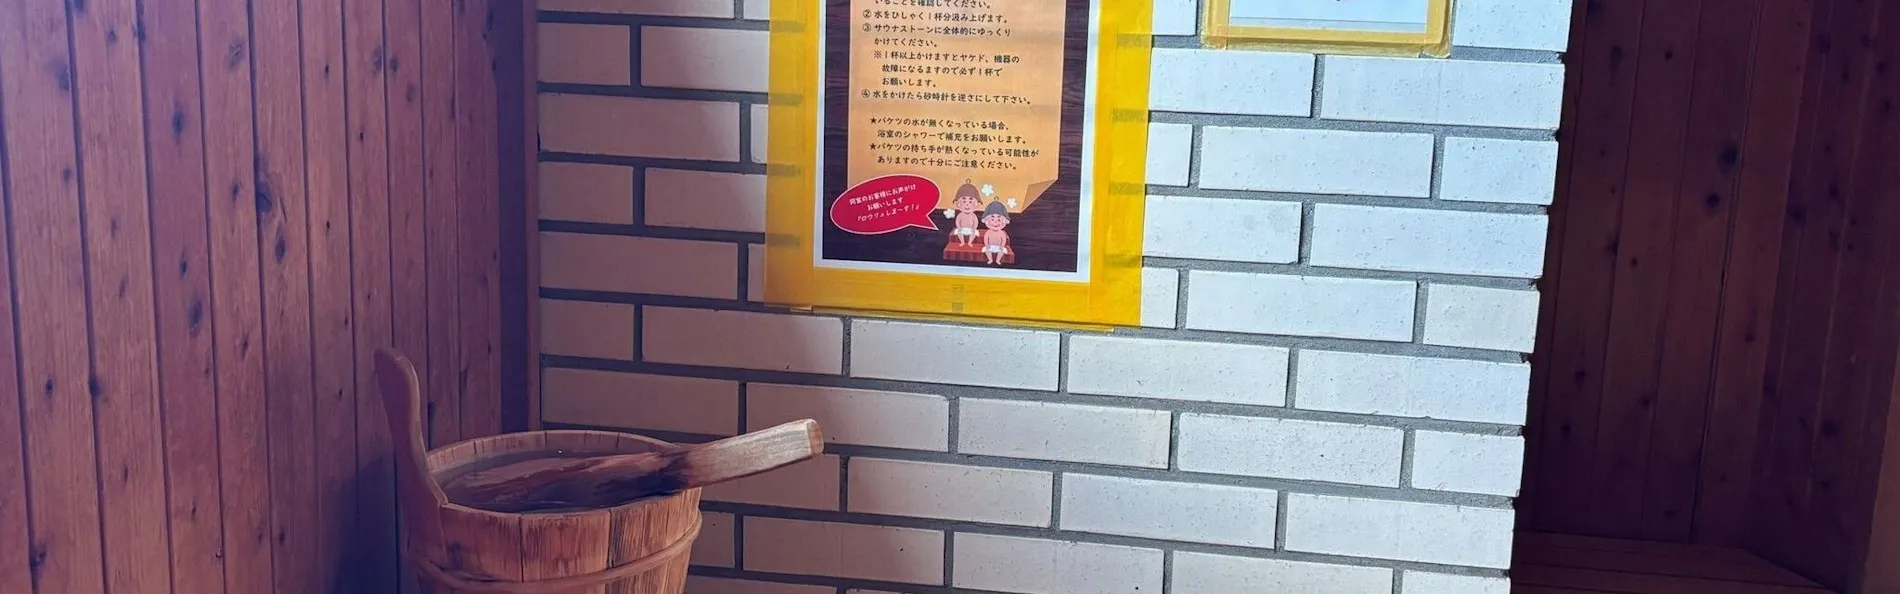 いることを確認してください。
② 水をひしゃく1杯分汲み上げます。
③ サウナストーンに全体的にゆっくり
かけてください。
※1杯以上かけますとヤケド、機器の
故障になるますので必ず1杯で
お願いします。
④ 水をかけたら砂時計を逆さにして下さい。
★バケツの水が無くなっている場合、
浴室のシャワーで補充をお願いします。
★バケツの持ち手が熱くなっている可能性が
ありますので十分にご注意ください。
同室のお客様にお声がけ
お願いします
『ロウリュしまーす！』